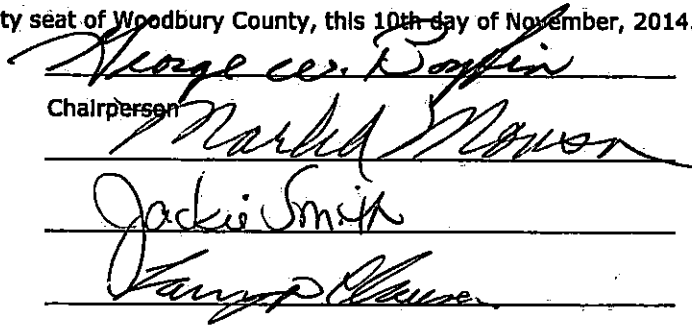 ty seat of Woodbury County, this 10th day of November, 2014.
George W. Boykin
Chairperson
Mark Monson
Jackie Smith
Larry Clausen